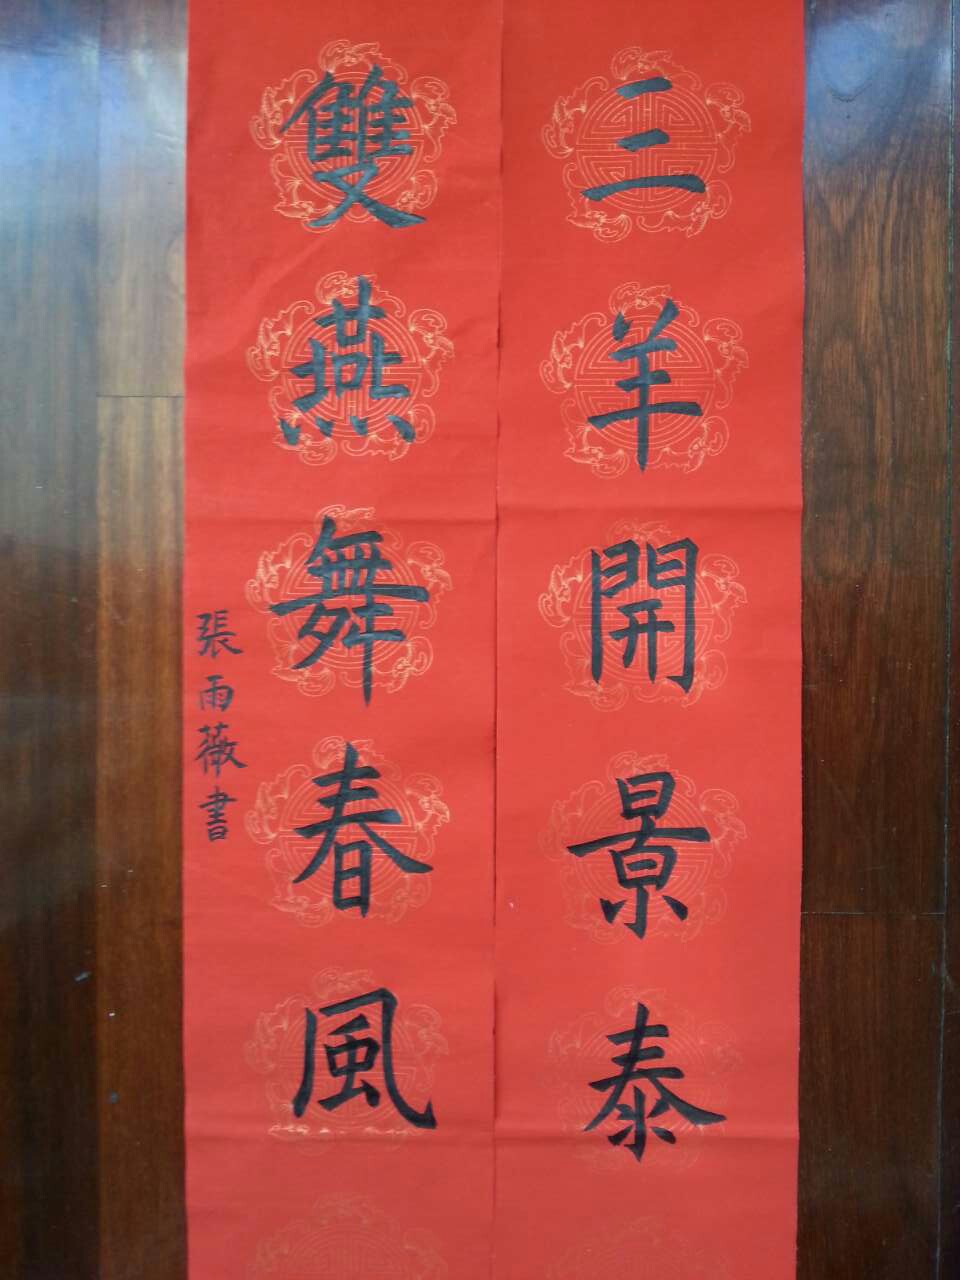 三羊開景泰
雙燕舞春風
張雨薇書